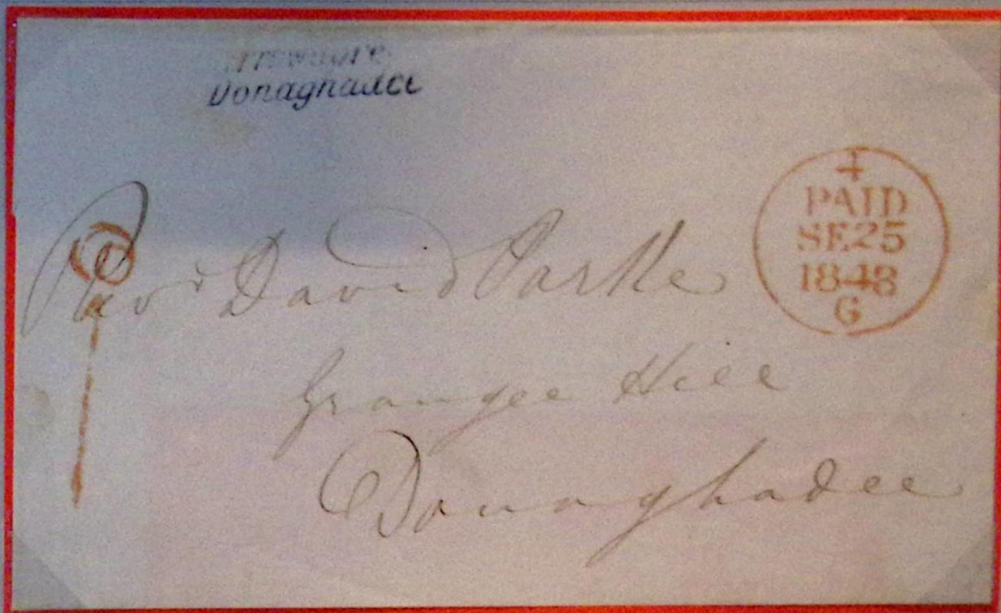 Donaghadee
+
PAID
SE25
1848
G
Revd David Parke
Grangee Hill
Donaghadee